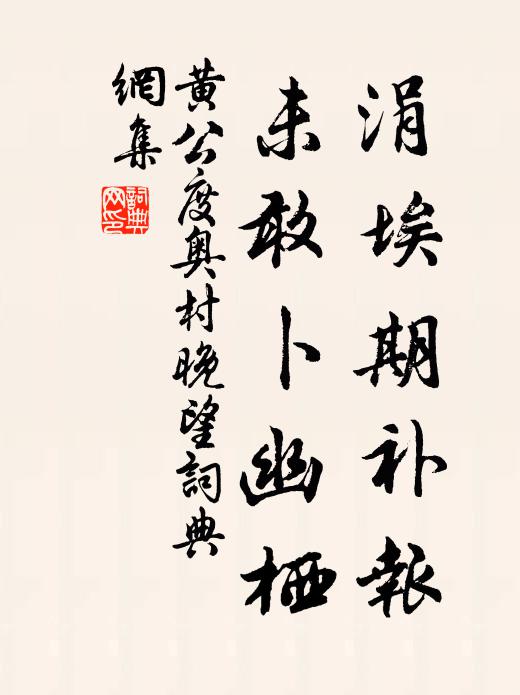 涓埃期补報
未敢卜幽栖
黄公度奥村晚望詞典
網集
詞典網印